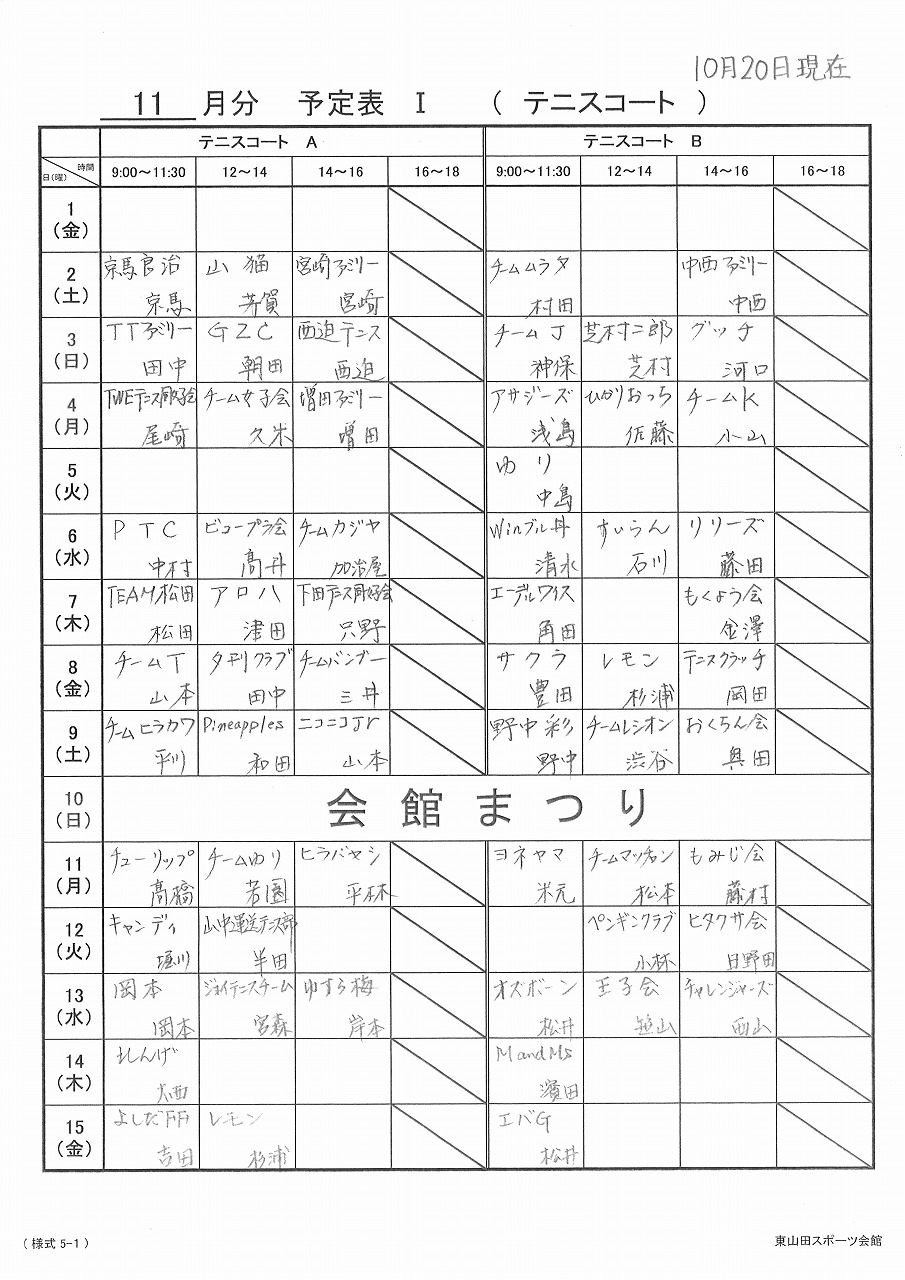 10月20日現在
11 月分 予定表 Ⅰ ( テニスコート )
テニスコート A テニスコート B
時間
日(曜) 9:00～11:30 12～14 14～16 16～18 9:00～11:30 12～14 14～16 16～18
1
(金)
2 京馬良治 山猫 宮崎ファミリー チームムラタ 中西ファミリー
(土) 京馬 芳賀 宮崎 村田 中西
3 TTファミリー GZC 西迫テニス チームJ 芝村二郎 グッチ
(日) 田中 朝田 西迫 神保 芝村 河口
4 TWEテニス同好会 チーム女子会 増田ファミリー アサジーズ ひかりおっち チームK
(月) 尾崎 久米 増田 浅島 佐藤 小山
5 ゆり
(火) 中島
6 PTC ビュープラ会 チームカジヤ Winブル丹 すいらん リリーズ
(水) 中村 高井 加治屋 清水 石川 藤田
7 TEAM松田 アロハ 下田テニス同好会 エーデルワイス もくよう会
(木) 松田 津田 只野 角田 金澤
8 チームT 夕刊クラブ チームバンブー サクラ レモン テニスクラッチ
(金) 山本 田中 三井 豊田 杉浦 岡田
9 チームヒラカワ Pineapples ニコニコJr 野中彩 チームレシオン おくちん会
(土) 平川 和田 山本 野中 渋谷 奥田
10
(日) 会館まつり
11 チューリップ チームゆり ヒラバヤシ ヨネヤマ チームマッチャン もみじ会
(月) 高橋 若園 平林 米元 松本 藤村
12 キャンディ 山中運送テニス部 ペンギンクラブ ヒタクサ会
(火) 堀川 半田 小林 日野田
13 岡本 ジョイテニスチーム ゆすら梅 オズボーン 王子会 チャレンジャーズ
(水) 岡本 宮森 岸本 松井 笹山 西山
14 れんげ MandMs
(木) 大西 濱田
15 よしだFF レモン エバG
(金) 吉田 杉浦 松井
(様式 5-1) 東山田スポーツ会館